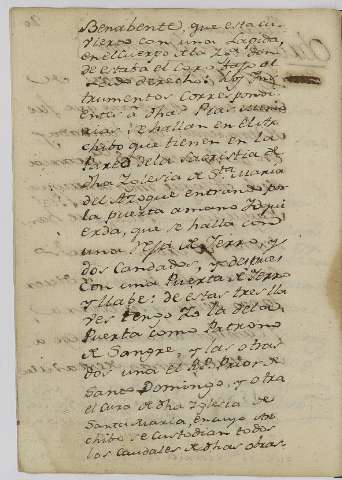 Benabente, que esta cu-
vierto con una Lapida,
en el cuerpo de la Yga. Donde
esta el Coro Vajo al
Lado derecho: los Yns-
trumentos correspondi-
entes a dhas Pias memo
rias se hallan en el Ar-
chibo que tienen en la
Pared de la Sacristia de
dha Yglesia de Sta. Maria
del Azogue entrando por
la puerta a mano Yzqui
erda, que se halla con
una rexa de Yerro, y
dos Candados, y despues
con una Puerta de Yerro
y llabe: de estas tres lla
ves tengo Yo la de la
Puerta como Patrono
de Sangre, y las otras
dos una el Re. Prior de
Santo Domingo, y otra
el Cura de dha Yglesia de
Santa Maria, en cuyo Ar
chibo se Custodian todos
los Caudales de dhas obras.